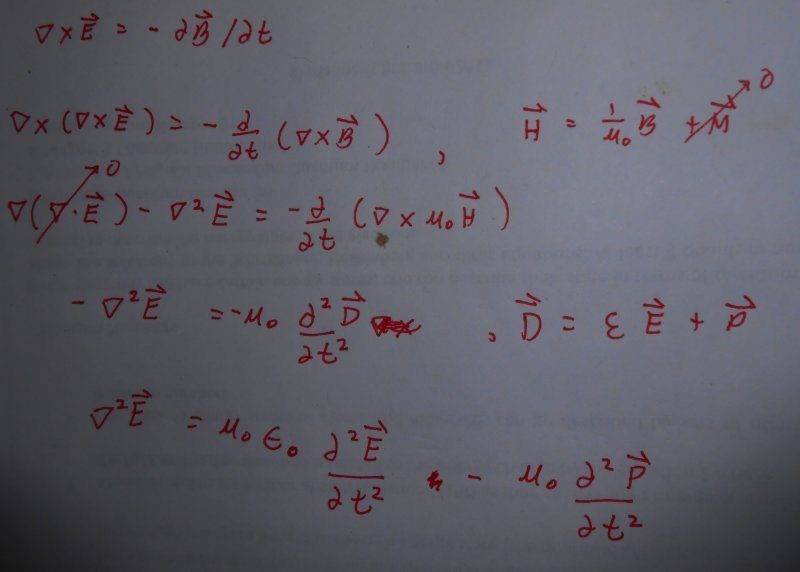 ∇×E⃗ = - ∂B⃗ /∂t
∇×(∇×E⃗) = - ∂/∂t (∇×B⃗) , H⃗ = 1/μ₀ B⃗ + M⃗ → 0
∇(∇·E⃗) → 0 - ∇²E⃗ = - ∂/∂t (∇ × μ₀H⃗)
- ∇²E⃗ = -μ₀ ∂²D⃗/∂t² , D⃗ = ε E⃗ + P⃗
∇²E⃗ = μ₀ ϵ₀ ∂²E⃗/∂t² - μ₀ ∂²P⃗/∂t²